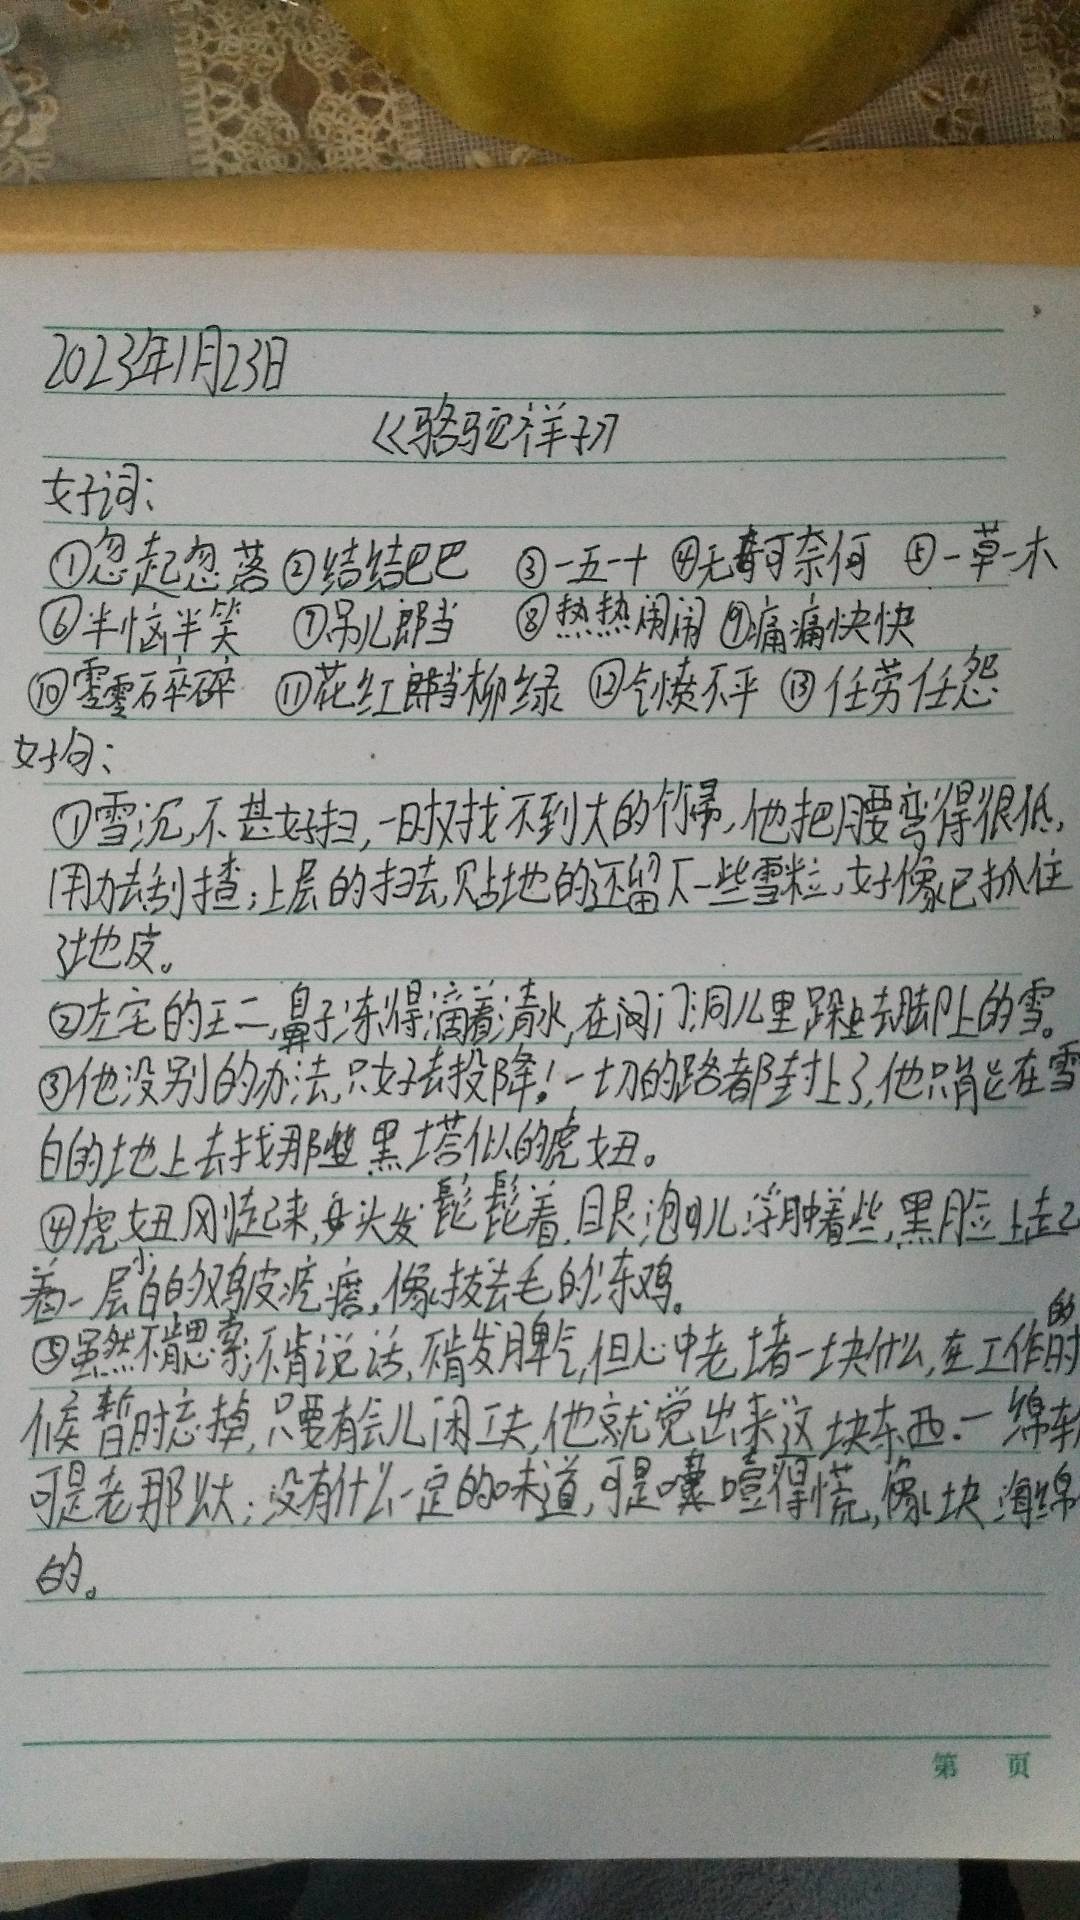 2023年1月23日
《骆驼祥子》
好词:
①忽起忽落 ②结结巴巴 ③一五一十 ④无可奈何 ⑤一草一木
⑥半恼半笑 ⑦吊儿郎当 ⑧热热闹闹 ⑨痛痛快快
⑩零零碎碎 ⑪花红柳绿 ⑫气愤不平 ⑬任劳任怨
好句:
①雪沉,不甚好扫,一时又找不到大的竹帚,他把腰弯得很低,
用力去刮揸;上层的扫去,贴地的还留下一些雪粒,好像已抓住
了地皮。
②左宅的王二,鼻子冻得滴着清水,在门洞儿里跺去脚上的雪。
③他没别的办法,只好去投降!一切的路都封上了,他只能在雪
白的地上去找那黑塔似的虎妞。
④虎妞刚起来,头发髭髭着,眼泡儿浮肿着些,黑脸上起
着一层小白的鸡皮疙瘩,像拔去毛的冻鸡。
⑤虽然不肯思索,不肯说话,不肯发脾气,但心中老堵一块什么,在工作的时
候暂时忘掉,只要有会儿闲工夫,他就觉出来这块东西.一绵软
可是老那么大;没有什么一定的味道,可是噎得慌,像块海绵
的。
第 页